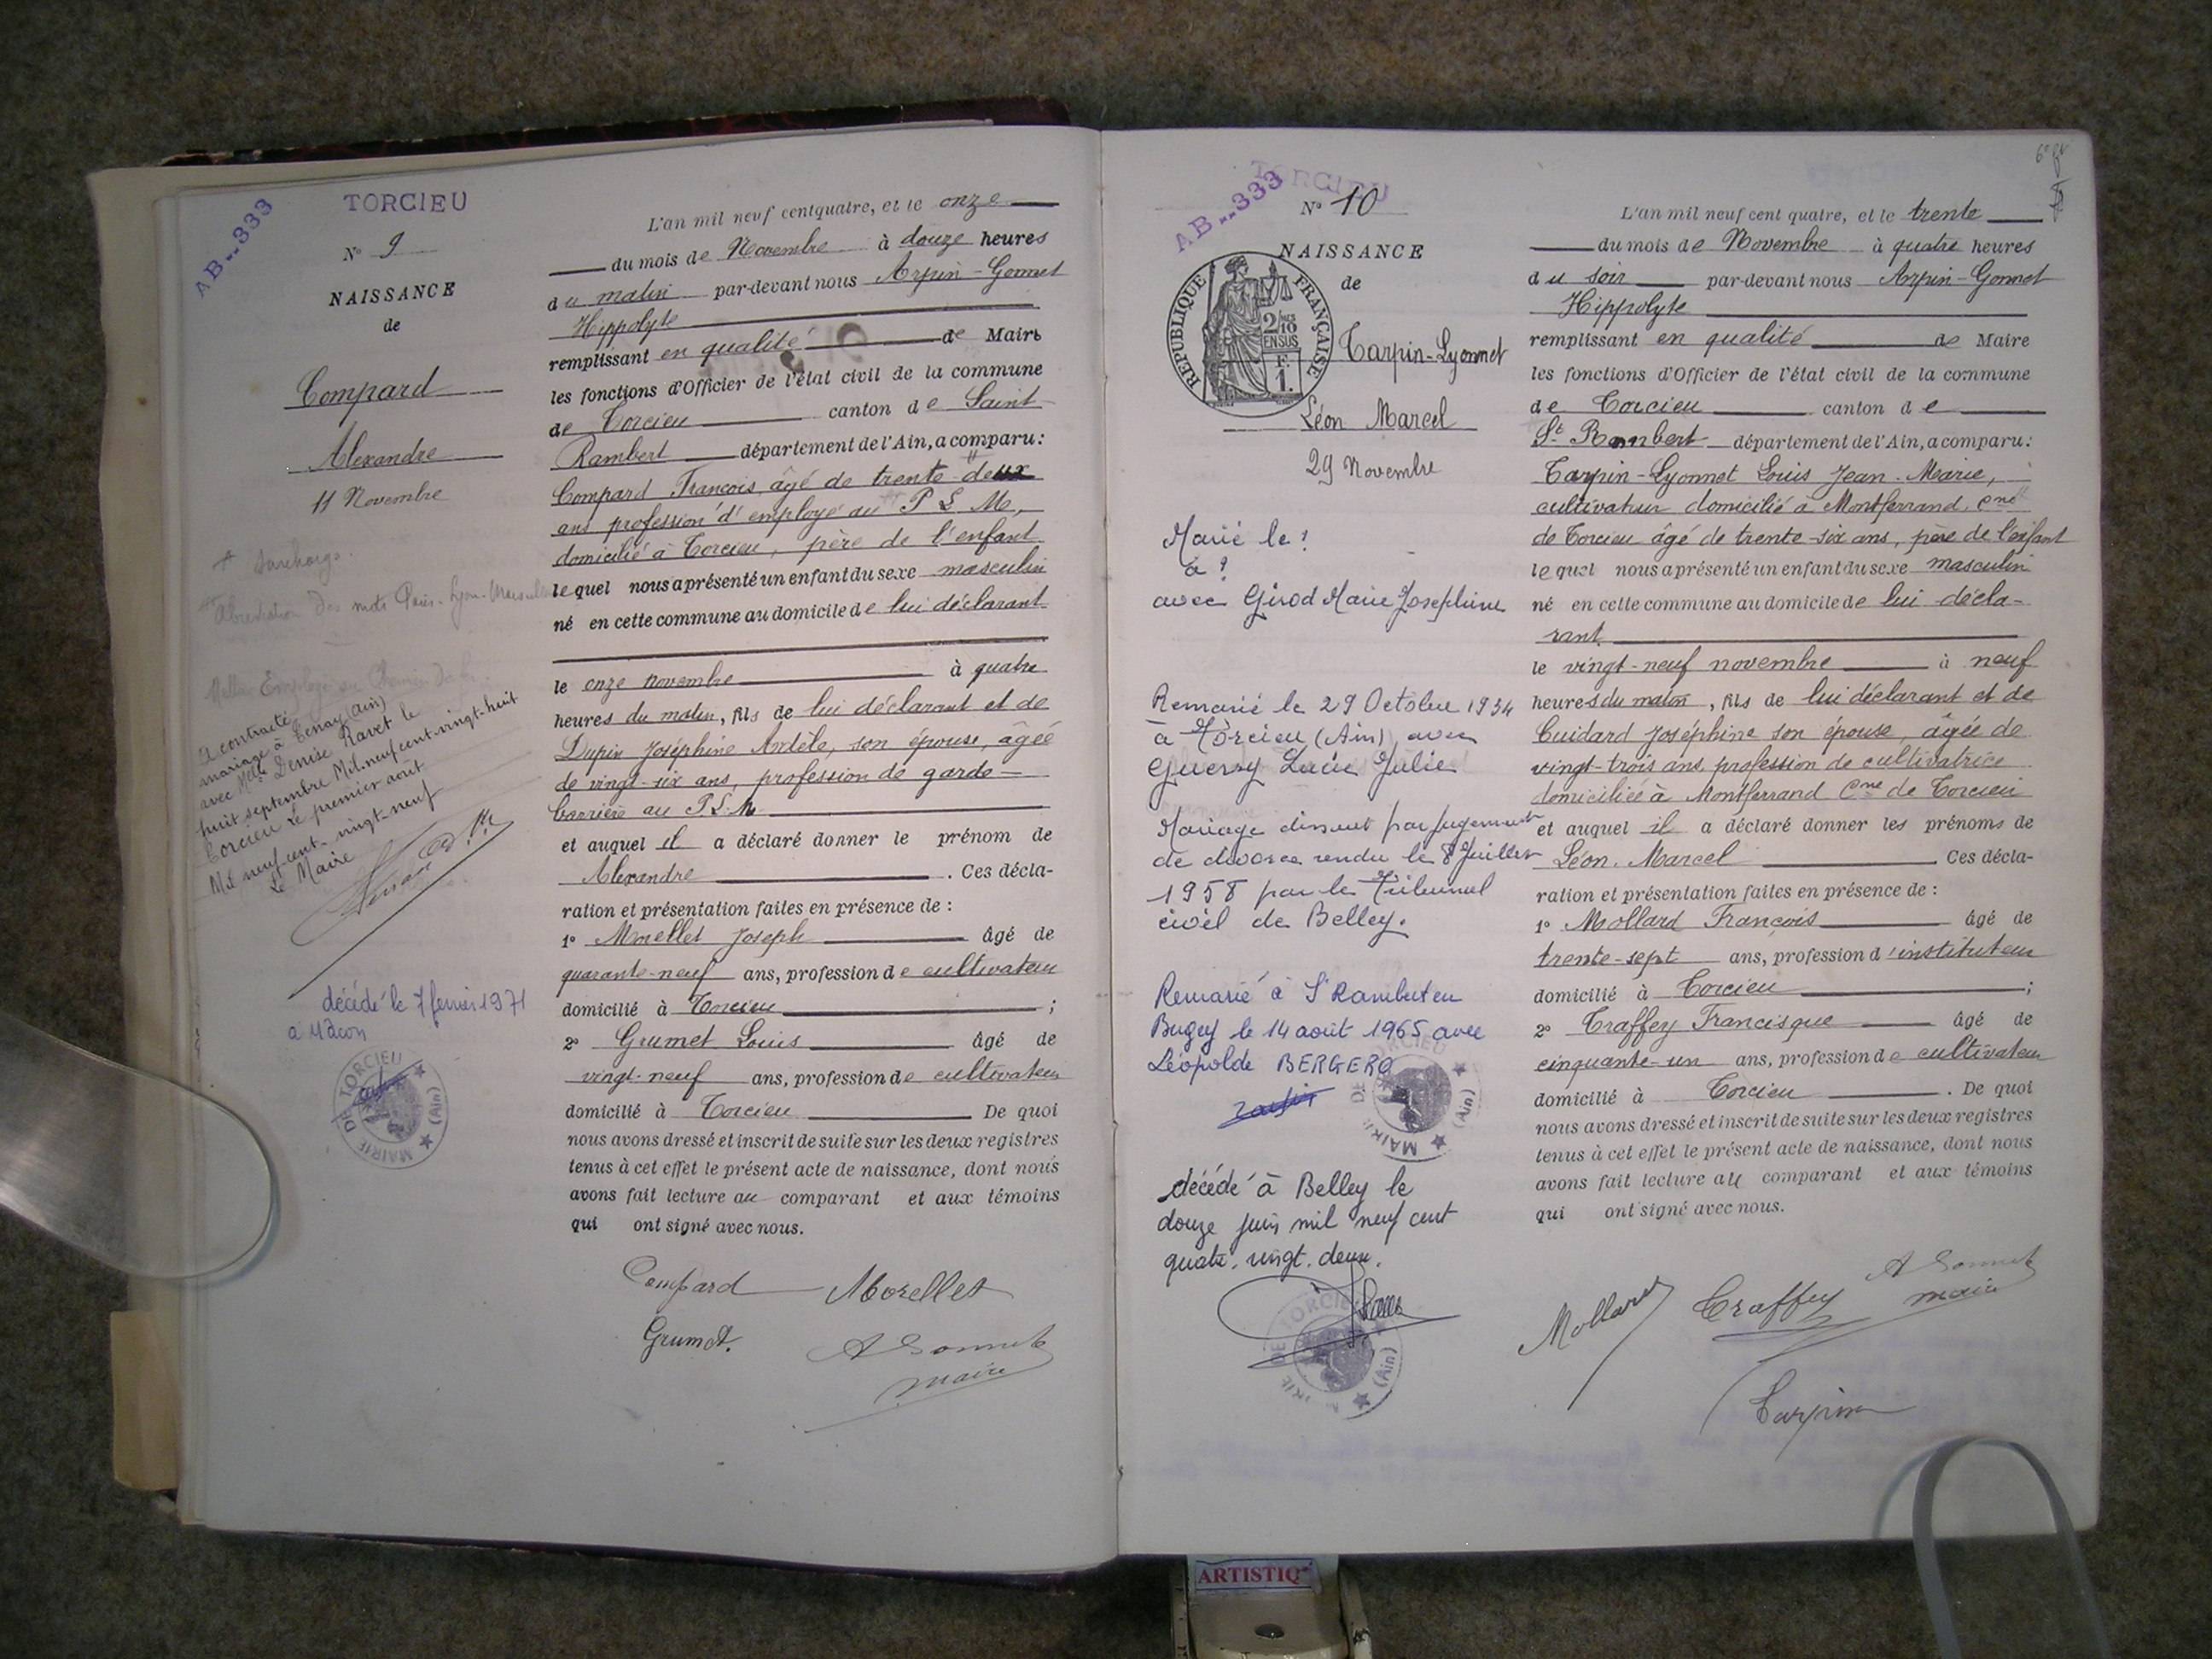 TORCIEU
AB--333
N° 9
NAISSANCE
de
Compard
Alexandre
11 Novembre
Abréviation des mots Paris-Lyon-Marseille
A contracté
mariage à Tenay (Ain)
avec Melle Denise Ravet le
huit septembre Mil neuf cent vingt-huit
Torcieu le premier août
Mil neuf-cent-vingt-neuf
Le Maire
décédé le 7 fevrier 1971
à Mâcon
MAIRIE DE TORCIEU (Ain)
L'an mil neuf cent quatre, et le onze
du mois de Novembre à douze heures
du matin par-devant nous Arpin-Gonnet
Hippolyte
remplissant en qualité de Maire
les fonctions d'Officier de l'état civil de la commune
de Torcieu canton de Saint-
Rambert département de l'Ain, a comparu:
Compard François, âgé de trente-deux
ans profession d'employé au P. L. M.,
domicilié à Torcieu, père de l'enfant
lequel nous a présenté un enfant du sexe masculin
né en cette commune au domicile de lui déclarant
le onze novembre à quatre
heures du matin, fils de lui déclarant et de
Dupin Joséphine Andèle, son épouse, âgée
de vingt-six ans, profession de garde-
barrière au P.L.M.
et auquel il a déclaré donner le prénom de
Alexandre. Ces décla-
ration et présentation faites en présence de :
1° Morellet Joseph âgé de
quarante-neuf ans, profession de cultivateur
domicilié à Torcieu ;
2° Grumet Louis âgé de
vingt-neuf ans, profession de cultivateur
domicilié à Torcieu De quoi
nous avons dressé et inscrit de suite sur les deux registres
tenus à cet effet le présent acte de naissance, dont nous
avons fait lecture au comparant et aux témoins
qui ont signé avec nous.
Compard Morellet
Grumet. A Gonnet
maire
TORCIEU
AB--333
N° 10
NAISSANCE
de
REPUBLIQUE FRANÇAISE
2/10 EN SUS
F. 1.
Tarpin-Lyonnet
Léon Marcel
29 Novembre
Marié le ?
à ?
avec Girod Marie Josephine
Remarié le 29 Octobre 1934
à Torcieu (Ain) avec
Guerry Lucie Julie
Mariage dissout par jugement
de divorce rendu le 8 Juillet
1958 par le Tribunal
civil de Belley.
Remarié à St Rambert en
Bugey le 14 août 1965 avec
Léopolde BERGERO
MAIRIE DE TORCIEU (Ain)
décédé à Belley le
douze juin mil neuf cent
quatre. vingt. deux.
MAIRIE DE TORCIEU (Ain)
L'an mil neuf cent quatre, et le trente
du mois de Novembre à quatre heures
du soir par-devant nous Arpin-Gonnet
Hippolyte
remplissant en qualité de Maire
les fonctions d'Officier de l'état civil de la commune
de Torcieu canton de
St Rambert département de l'Ain, a comparu:
Tarpin-Lyonnet Louis Jean-Marie,
cultivateur domicilié à Montferrand, Cne
de Torcieu âgé de trente-six ans, père de l'enfant
lequel nous a présenté un enfant du sexe masculin
né en cette commune au domicile de lui décla-
rant
le vingt-neuf novembre à neuf
heures du matin, fils de lui déclarant et de
Cuidard Joséphine son épouse, âgée de
vingt-trois ans, profession de cultivatrice
domiciliée à Montferrand Cne de Torcieu
et auquel il a déclaré donner les prénoms de
Léon. Marcel Ces décla-
ration et présentation faites en présence de :
1° Mollard François âgé de
trente-sept ans, profession d'instituteur
domicilié à Torcieu ;
2° Traffey Francisque âgé de
cinquante-un ans, profession de cultivateur
domicilié à Torcieu. De quoi
nous avons dressé et inscrit de suite sur les deux registres
tenus à cet effet le présent acte de naissance, dont nous
avons fait lecture au comparant et aux témoins
qui ont signé avec nous.
Mollard Traffey A Gonnet
maire
Tarpin
ARTISTIQ